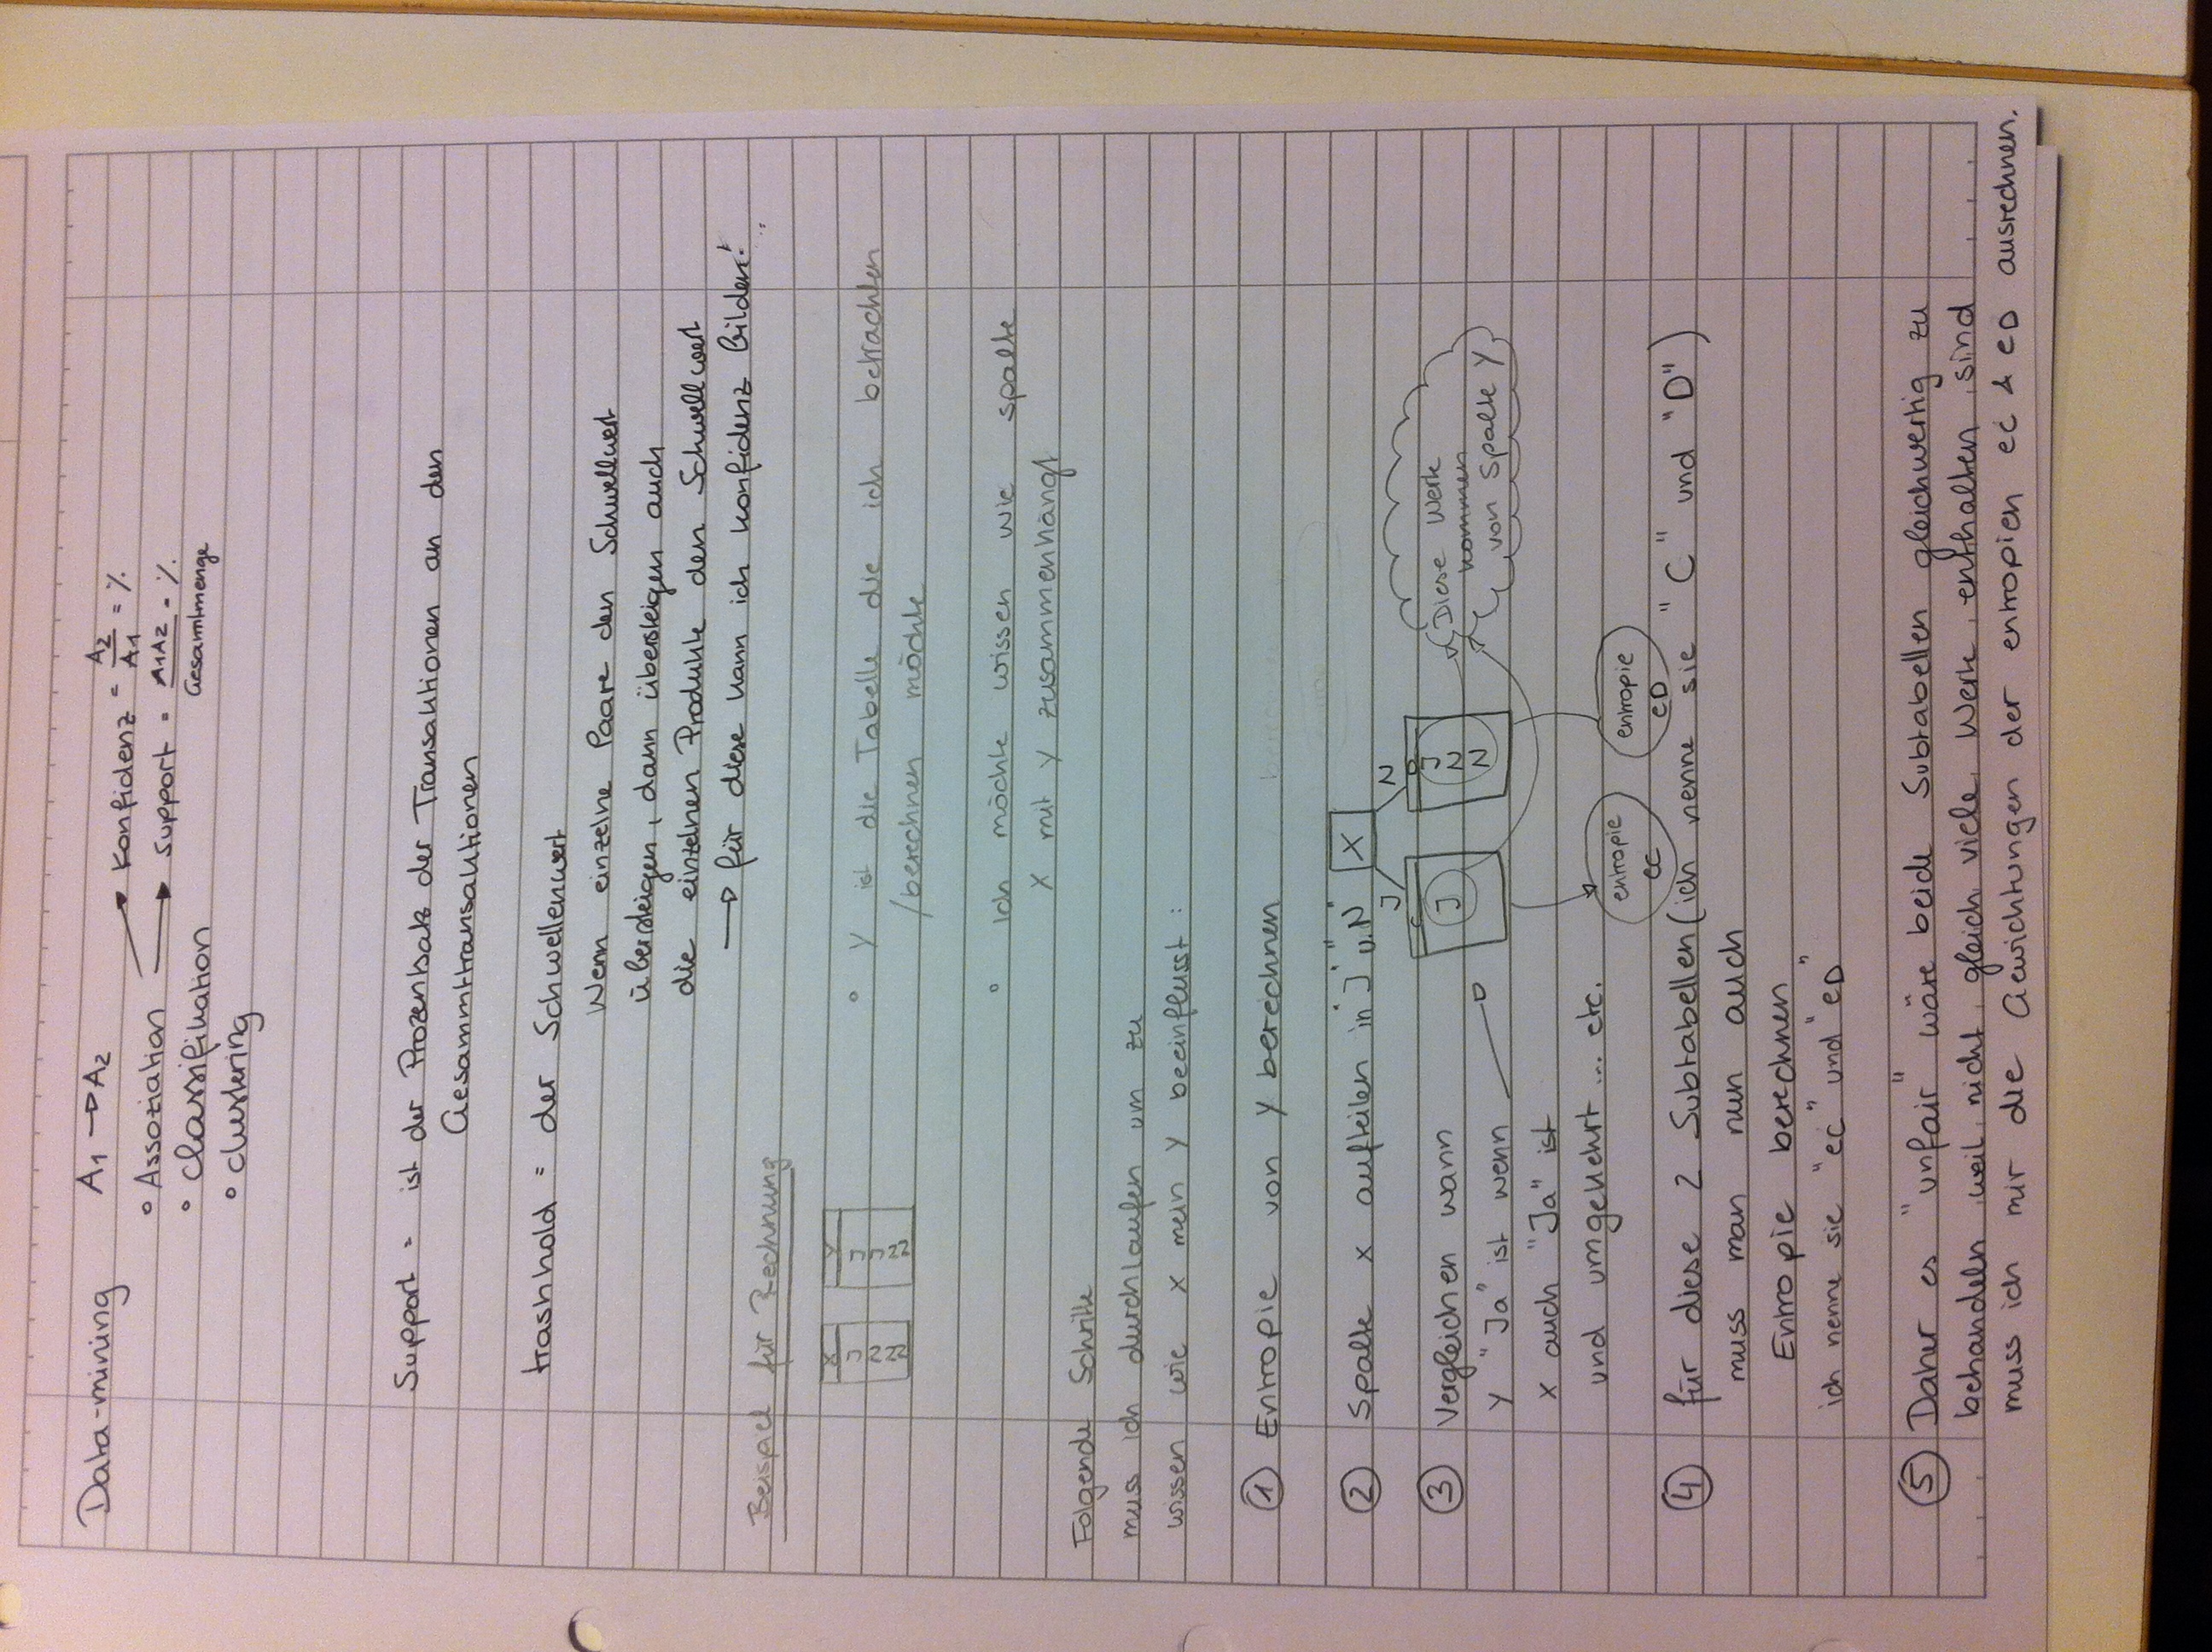 Data-mining
A1 → A2
Konfidenz = A2 / A1 = %
° Assoziation
Support = A1A2 / Gesamtmenge = %
° Classifikation
° clustering
Support = ist der Prozentsatz der Transaktionen an den
Gesammttransaktionen
trashhold = der Schwellenwert
Wenn einzelne Paare den Schwellwert
übersteigen, dann übersteigen auch
die einzelnen Produkte den Schwellwert
→ für diese kann ich konfidenz bilden!
Beispiel für Rechnung
X Y
° Y ist die Tabelle die ich betrachten
/berechnen möchte
° Ich möchte wissen wie spalte
X mit Y zusammenhängt
Folgende Schritte
muss ich durchlaufen um zu
wissen wie x mein Y beeinflusst :
① Entropie von Y berechnen
② Spalte x aufteilen in "J" u. "N" X
J N
C D
③ Vergleichen wann
J
J N N
Diese Werte
kommen
von Spalte Y
Y "Ja" ist wenn
x auch "Ja" ist
und umgekehrt ... etc.
entropie
ec
entropie
eD
④ für diese 2 Subtabellen (ich nenne sie "C" und "D")
muss man nun auch
Entropie berechnen
ich nenne sie "ec" und "eD"
⑤ Daher es "unfair" wäre beide Subtabellen gleichwertig zu
behandeln weil nicht gleich viele Werte enthalten sind
muss ich mir die Gewichtungen der entropien ec & eD ausrechnen.